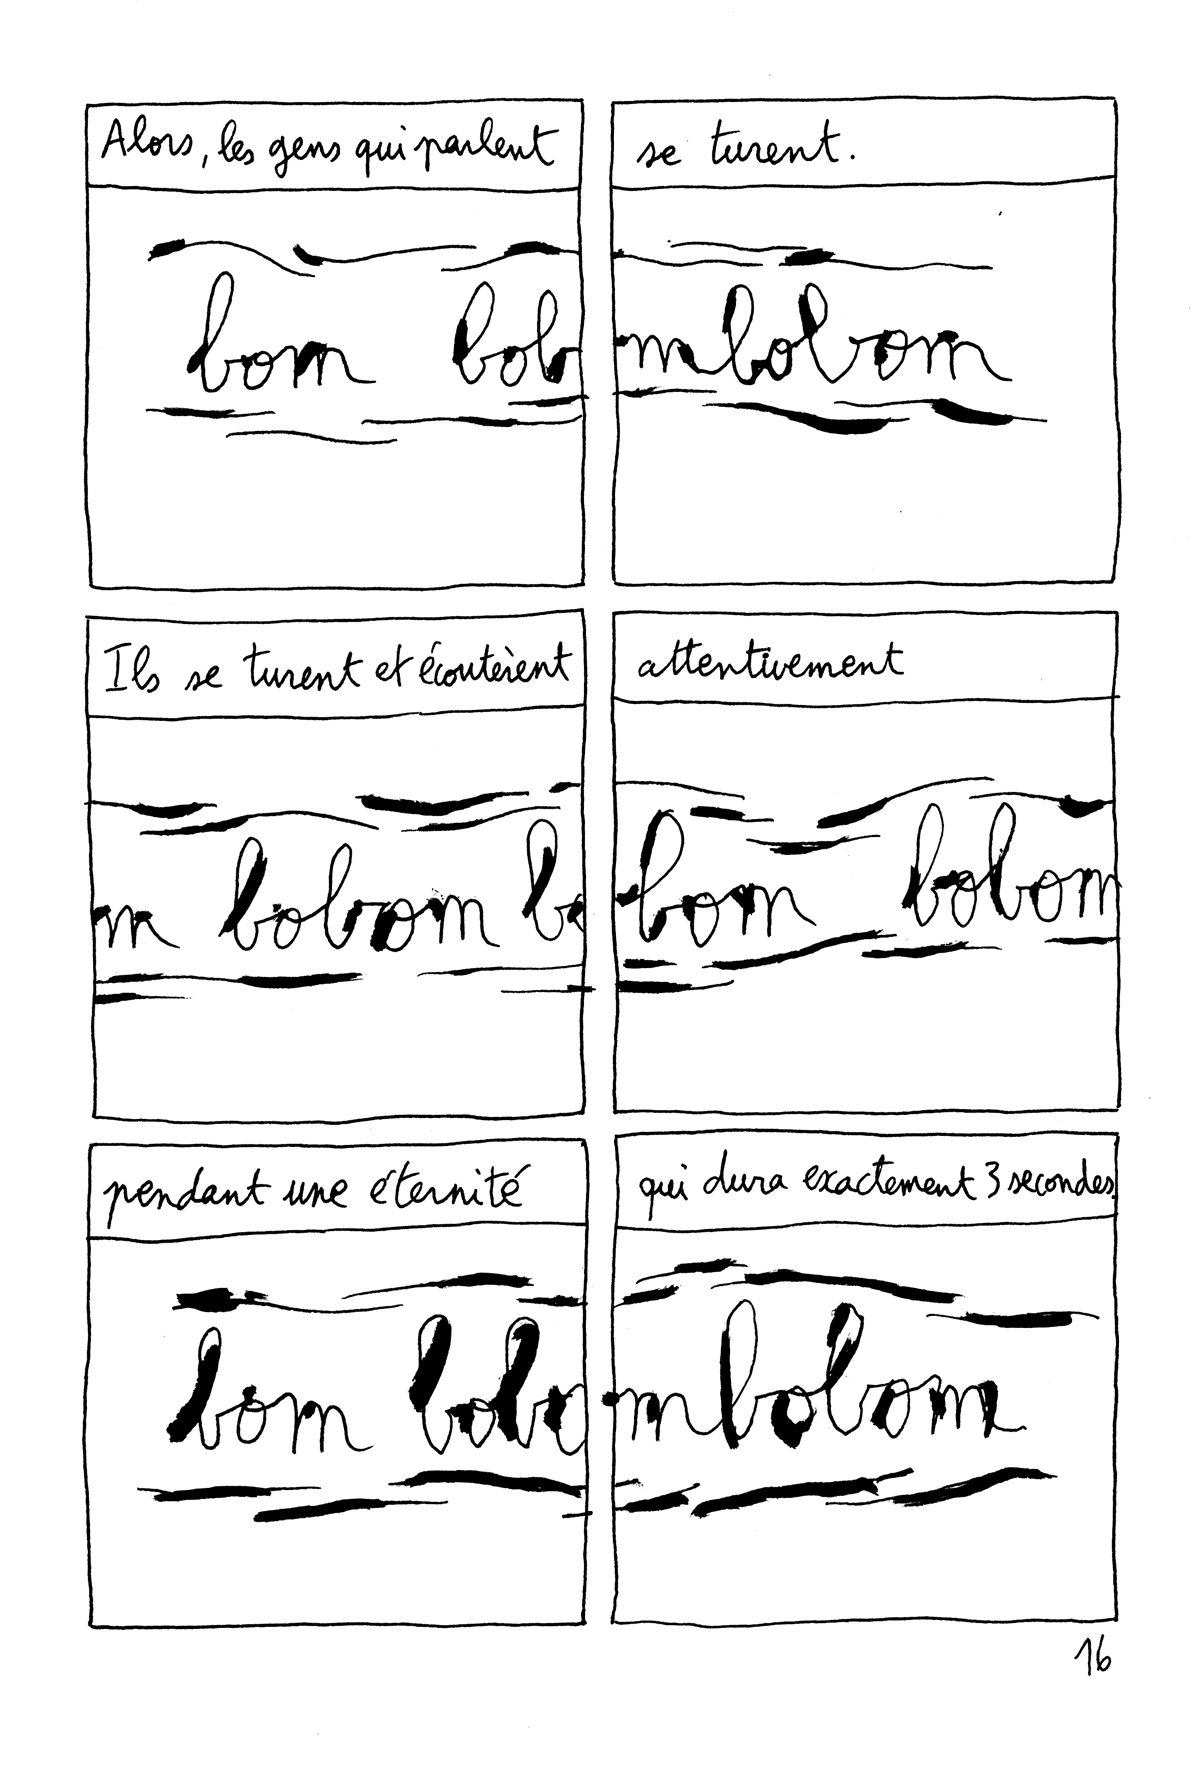 Alors, les gens qui parlent
se turent.
bom bob
mbobom
Ils se turent et écoutèrent
attentivement
m bobom bo
bom bobom
pendant une éternité
qui dura exactement 3 secondes.
bom bobo
mbobom
16